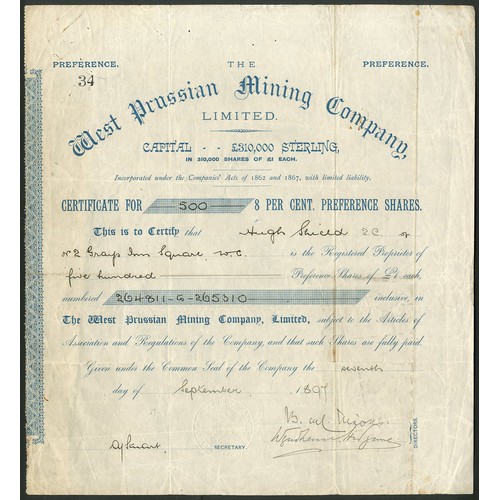 PREFERENCE. THE PREFERENCE.
34
West Prussian Mining Company,
LIMITED.
CAPITAL - - £310,000 STERLING,
IN 310,000 SHARES OF £1 EACH.
Incorporated under the Companies' Acts of 1862 and 1867, with limited liability.
CERTIFICATE FOR 500 8 PER CENT. PREFERENCE SHARES.
This is to Certify that Hugh Shield QC of
No 2 Grays Inn Square W.C. is the Registered Proprietor of
five hundred Preference Shares of £1 each,
numbered 264811 to 265310 inclusive, in
The West Prussian Mining Company, Limited, subject to the Articles of
Association and Regulations of the Company, and that such Shares are fully paid.
Given under the Common Seal of the Company the seventh
day of September 1897
SECRETARY.
DIRECTORS.